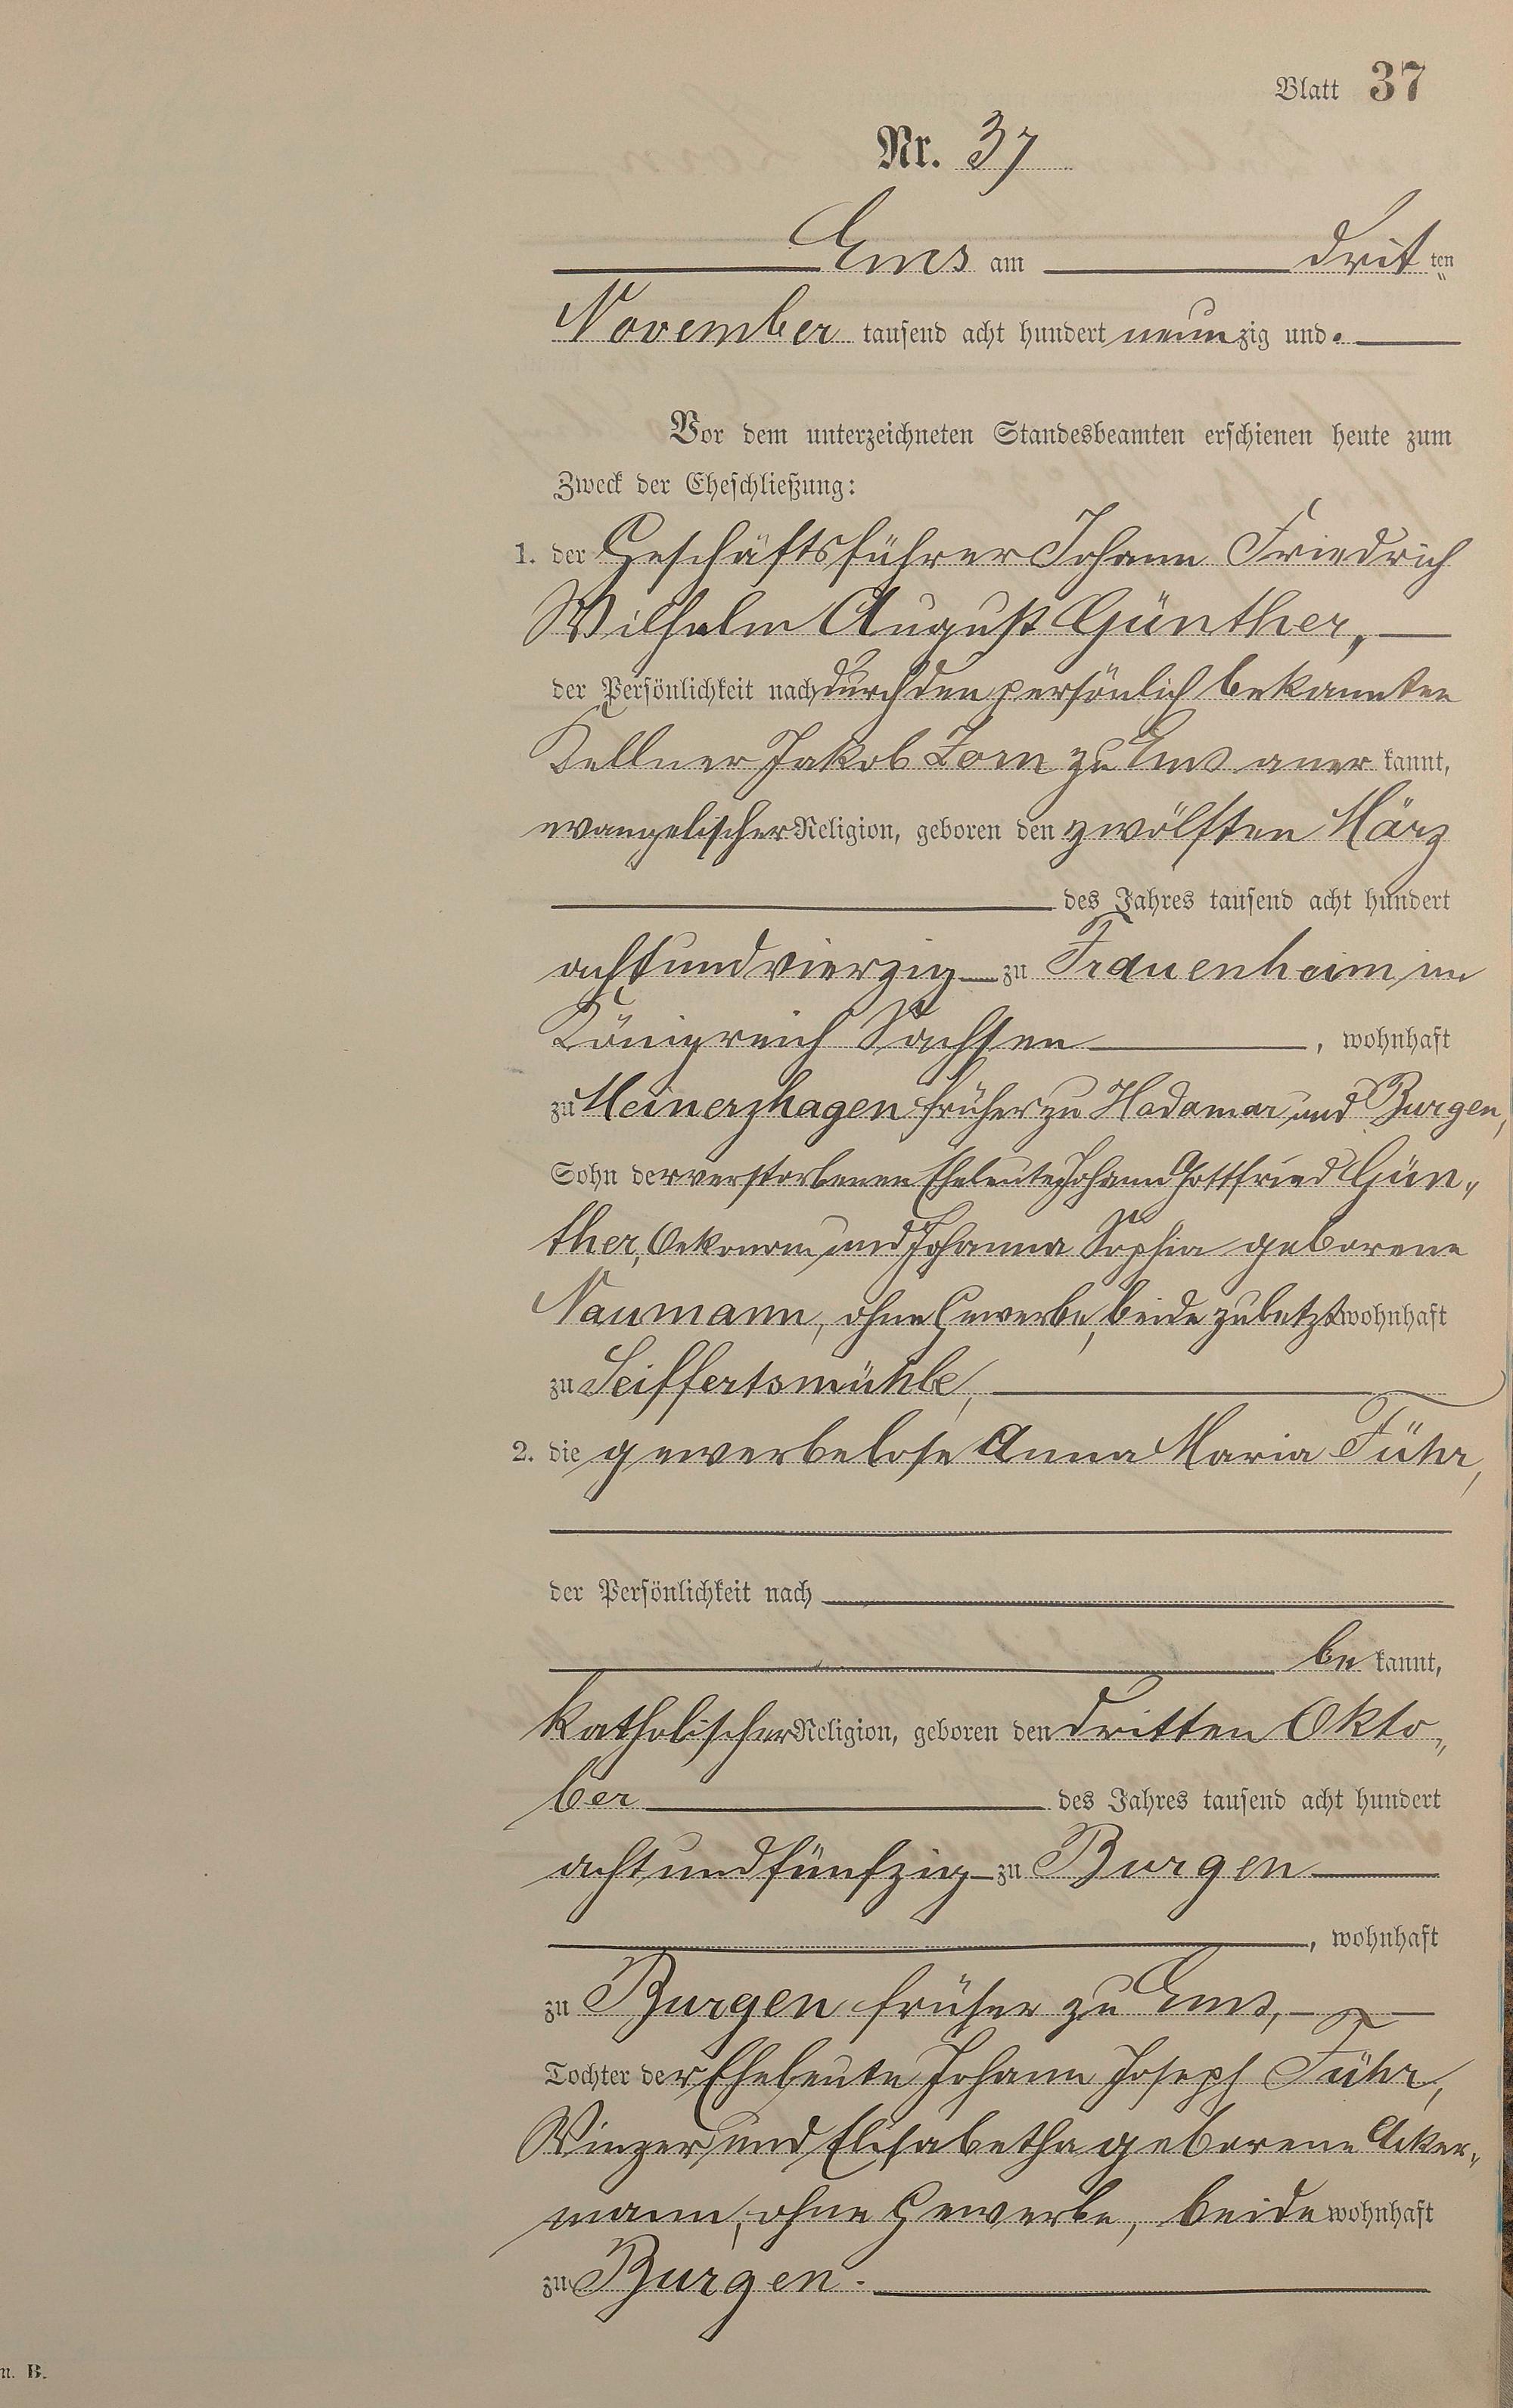 Blatt 37
Nr. 37
Ems am dritten
November tausend acht hundert neunzig und.
Vor dem unterzeichneten Standesbeamten erschienen heute zum
Zweck der Eheschließung:
1. der Geschäftsführer Johann Friedrich
Wilhelm August Günther,
der Persönlichkeit nach durch den persönlich bekannten
Kellner Jakob Zorn zu Ems anerkannt,
evangelischer Religion, geboren den zwölften März
des Jahres tausend acht hundert
achtundvierzig zu Frauenheim im
Königreich Sachsen, wohnhaft
zu Meinerzhagen früher zu Hadamar und Burgen,
Sohn der verstorbenen Eheleute Johann Gottfried Gün„
ther, Oekonom und Johanna Sophia geborene
Naumann, ohne Gewerbe, beide zuletzt wohnhaft
zu Seiffertsmühle,
2. die gewerbelose Anna Maria Führ,
der Persönlichkeit nach
bekannt,
katholischer Religion, geboren den dritten Okto„
ber des Jahres tausend acht hundert
achtundfünfzig zu Burgen
, wohnhaft
zu Burgen früher zu Ems,
Tochter der Eheleute Johann Joseph Führ,
Winzer und Elisabetha geborene Acker„
mann, ohne Gewerbe, beide wohnhaft
zu Burgen.
n. B.